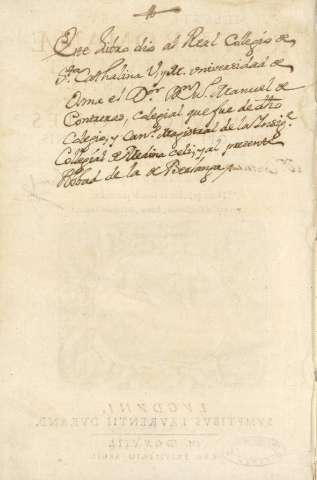 Este Libro dio al Real Colegio de
Sta. Cathalina V. y Mr. Universidad de
Osma el Dor. Dn. Manuel de
Contreras, colegial que fue de dho
Colegio, y Canº. Magistral de la Insige.
Collegial de Medina Celi, y al presente
Abbad de la de Berlanga
LVGDVNI,
SVMPTIBVS LAVRENTII DVRAND.
CVM PRIVILEGIO REGIS.